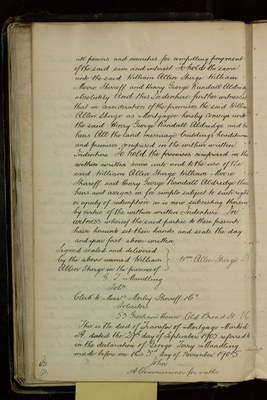 all powers and remedies for compelling payment
of the said sum and interest To hold the same
unto the said William Allen Sturge William
Moore Shirreff and Henry George Randall Aldridge
absolutely And this Indenture further witnesseth
that in consideration of the premises the said William
Allen Sturge as Mortgagee hereby conveys unto
the said Henry George Randall Aldridge and his
heirs All the land messuages buildings hereditaments
and premises comprised in the within written
Indenture To hold the premises comprised in the
within written same unto and to the use of the
said William Allen Sturge William Moore
Shirreff and Henry George Randall Aldridge their
heirs and assigns in fee simple subject to such right
or equity of redemption as is now subsisting therein
by virtue of the within written Indenture In
witness whereof the said parties to these presents
have hereunto set their hands and seals the day
and year first above written
Signed sealed and delivered
by the above named William
Allen Sturge in the presence of
Wm Allen Sturge
G. T. Mandling
Clerk to Messrs Morley Shirreff &Co
Solicitors
53 Gresham House Old Broad St EC
This is the deed of Transfer of Mortgage Marked
A dated the 29th day of September 1905 referred to
in the declaration of George Terry Mandling
made before me this 3rd day of November 1905
A Commissioner for oaths